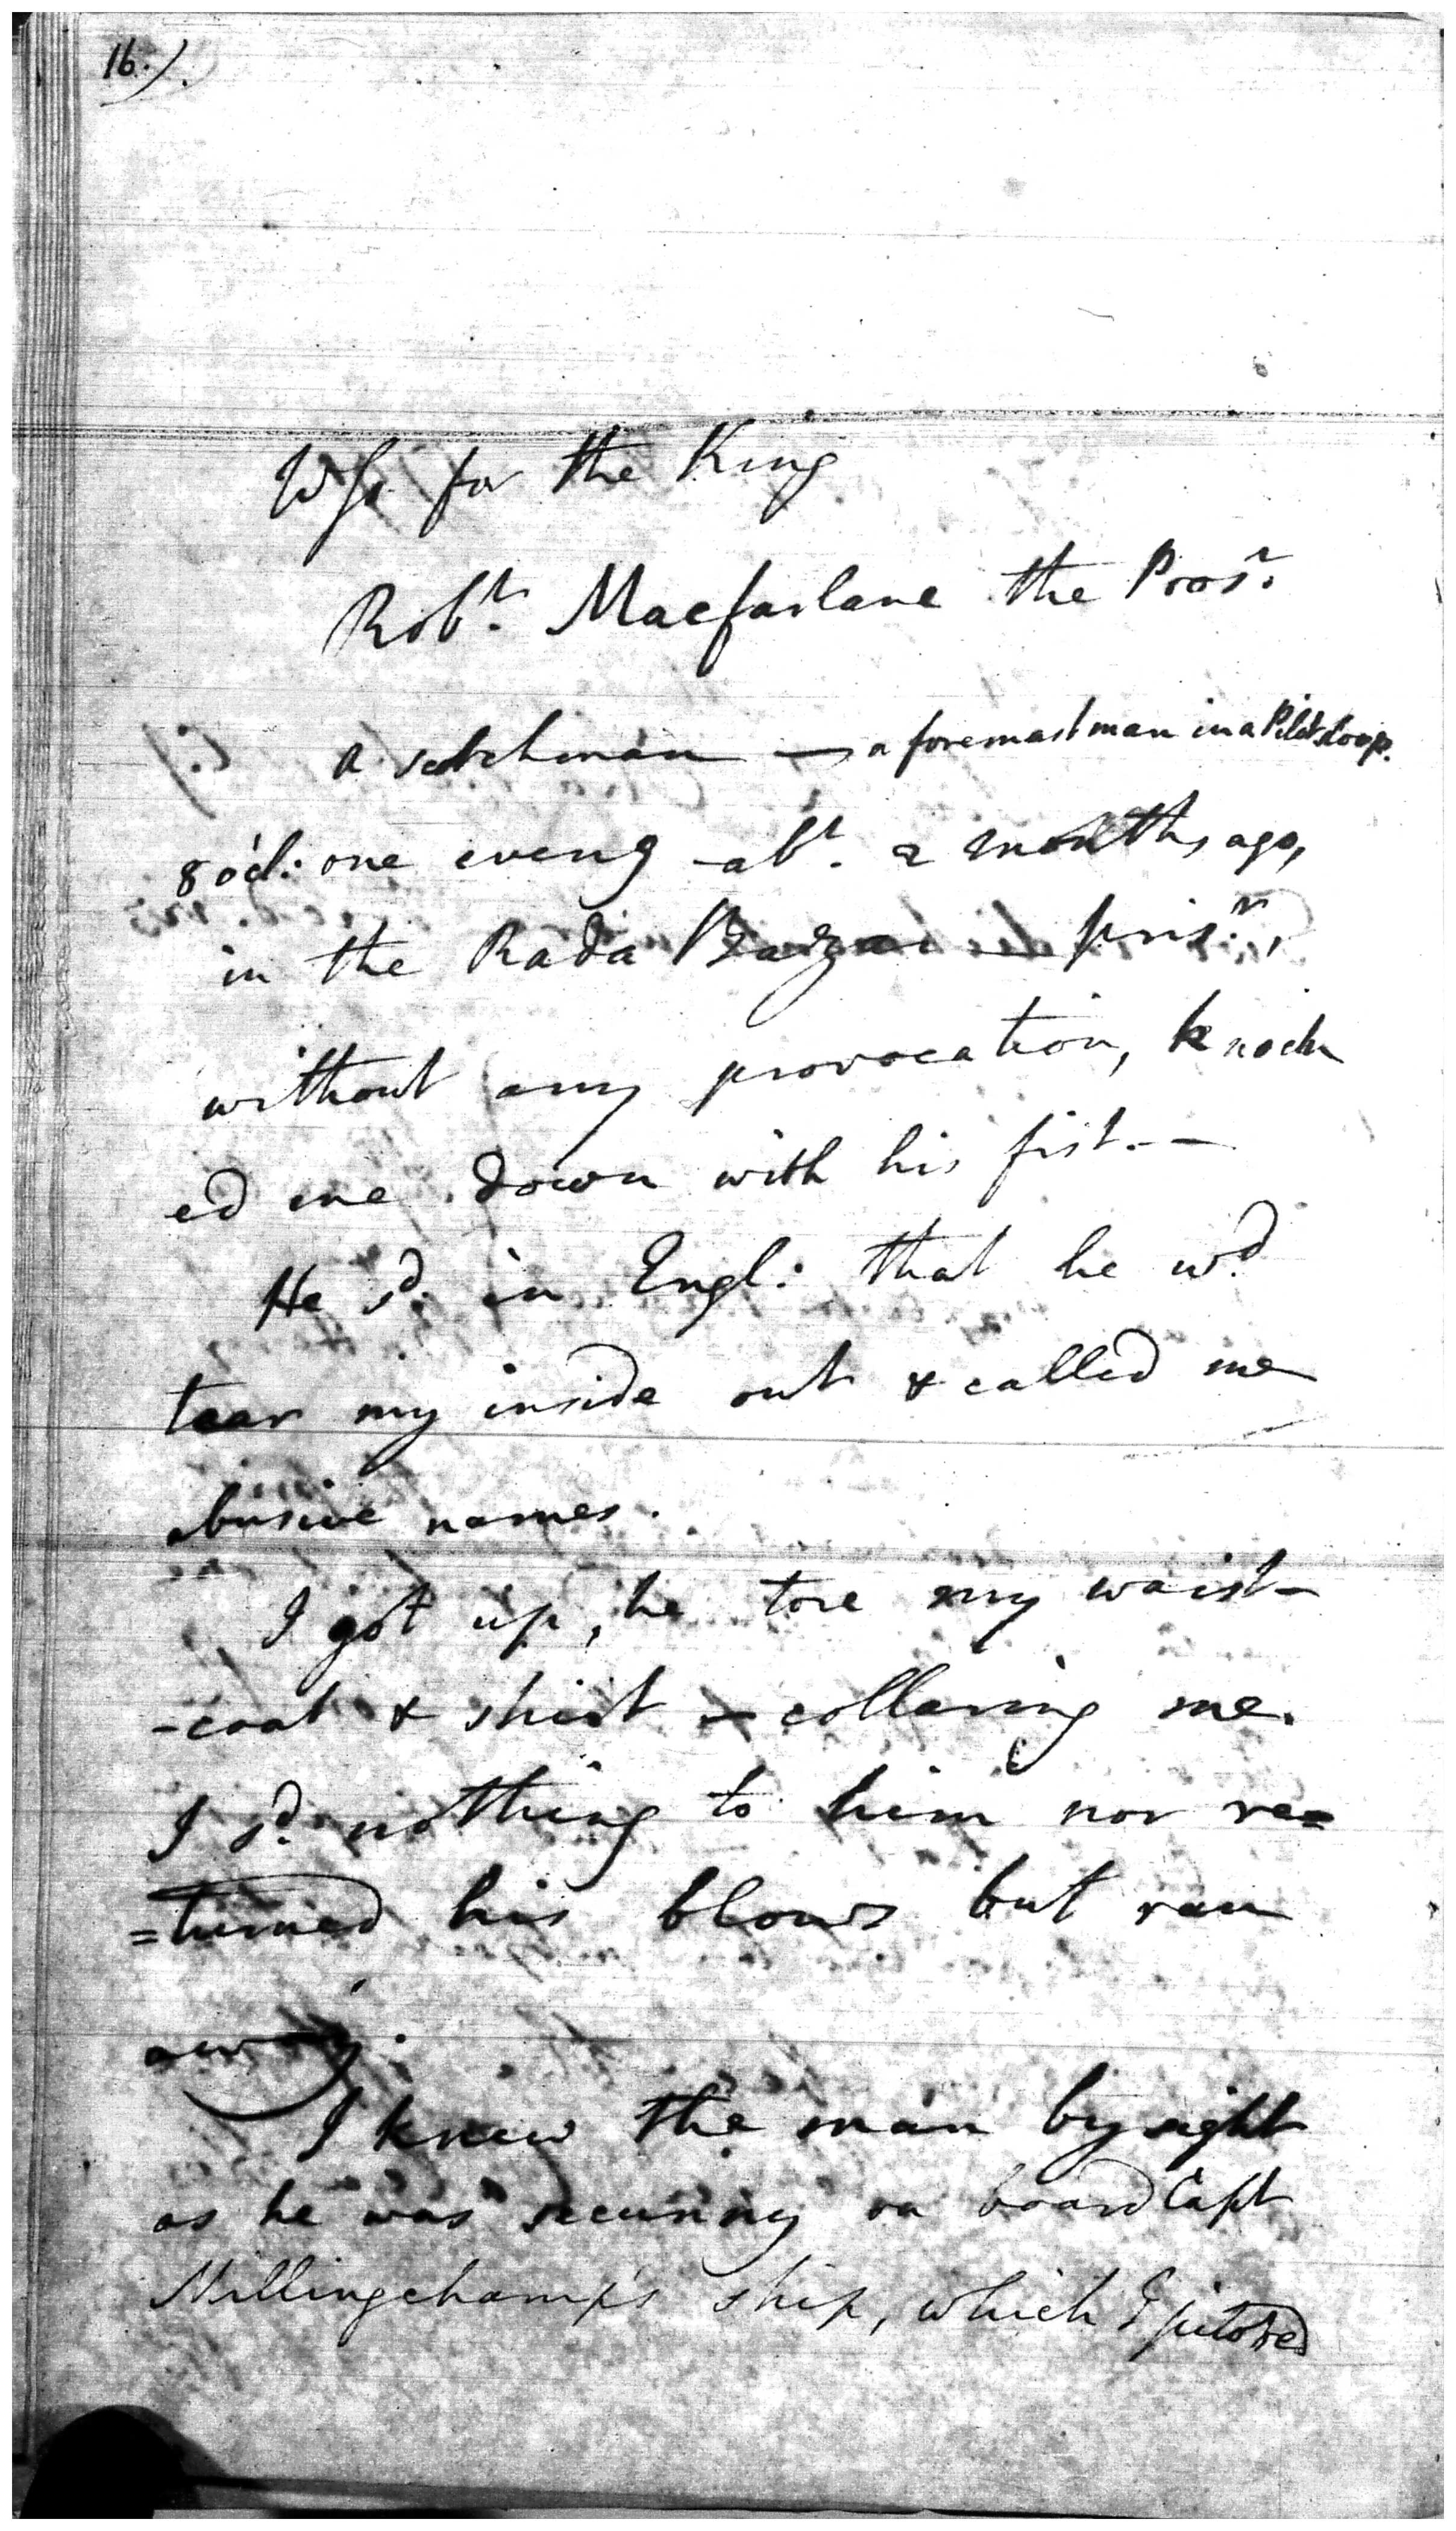 16.)
Ws for the King
Robt. Macfarlane the Prosr.
A scotchman — a foremast man in a Pilot sloop.
8 o'cl: one eveng abt. 2 months ago,
in the Rada Bazar — prisr.,
without any provocation, knock
ed me down with his fist. —
He sd. in Engl: that he wd.
tear my inside out & called me
abusive names.
I got up, he tore my waist-
-coat & shirt — collaring me.
I sd. nothing to him nor re=
=turned his blows but ran
away.
I knew the man by sight
as he was secunny on board Capt
Millingchamp's ship, which I piloted